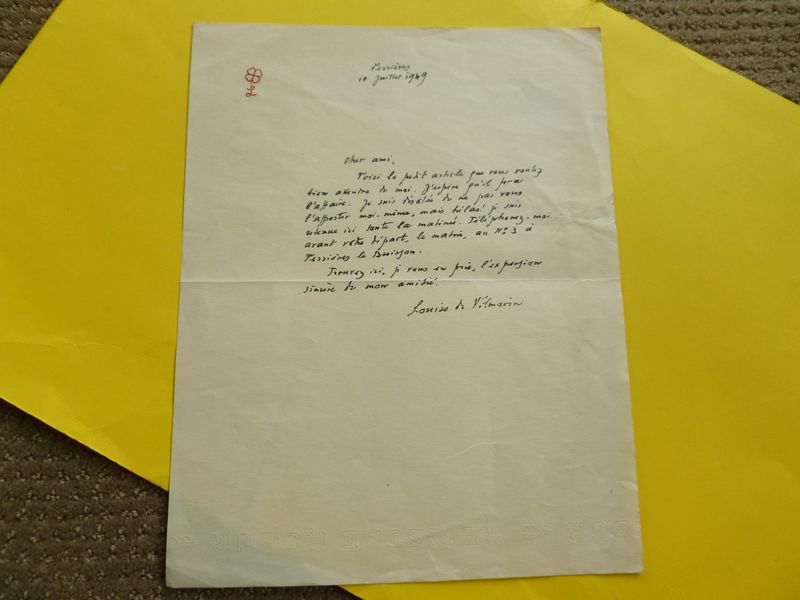 Verrières
10 Juillet 1949
Cher ami,
Voici le petit article que vous voulez
bien attendre de moi. J'espère qu'il fera
l'affaire. Je suis désolée de ne pas vous
l'apporter moi-même, mais hélas! je suis
retenue ici toute la matinée. Téléphonez-moi
avant votre départ, le matin, au N° 3 à
Verrières le Buisson.
Trouvez ici, je vous en prie, l'expression
sincère de mon amitié.
Louise de Vilmorin